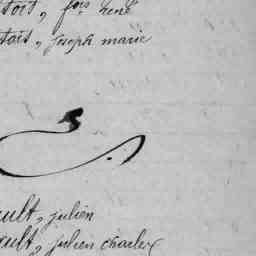 toit, fois rené
tais, joseph marie
ult, julien
rult, julien charles